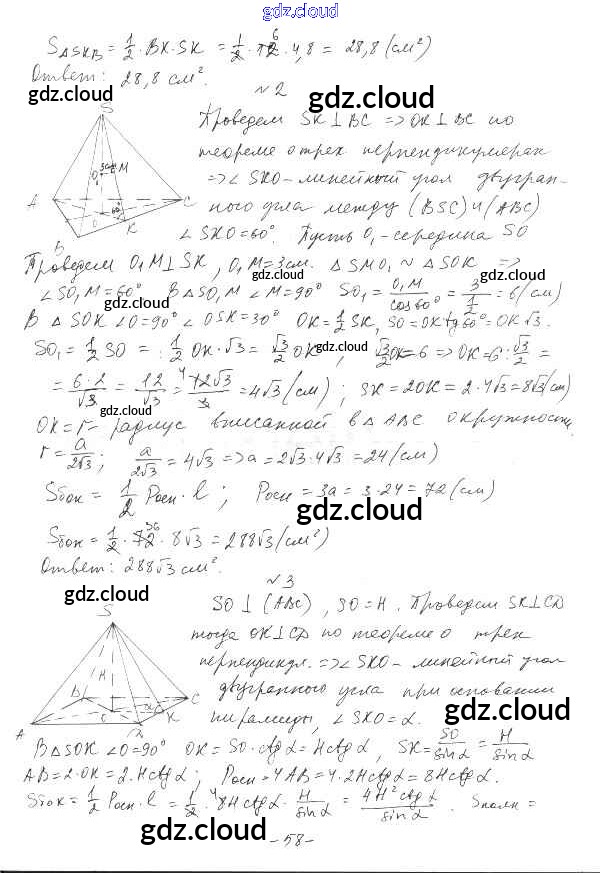 gdz.cloud
S△SKB = 1/2 · BK · SK = 1/2 · 12 · 4,8 = 28,8 (см²)
Ответ: 28,8 см².
gdz.cloud
gdz.cloud
№2
Проведем SK ⊥ BC => OK ⊥ BC по
теореме о трех перпендикулярах
=> ∠ SKO - линейный угол двугран-
ного угла между (BSC) и (ABC)
∠ SKO = 60°. Пусть O₁ - середина SO
S
O₁
3см
M
A
O
60°
C
K
B
Проведем O₁M ⊥ SK, O₁M = 3см. △ SMO₁ ~ △ SOK =>
gdz.cloud
gdz.cloud
∠ SO₁M = 60° В △ SO₁M ∠ M = 90° SO₁ = O₁M/cos60° = 3/(1/2) = 6 (см)
gdz.cloud
В △ SOK ∠O = 90° ∠ OSK = 30° OK = 1/2 SK, SO = OK tg 60° = OK√3.
SO₁ = 1/2 SO = 1/2 OK · √3 = √3/2 OK, √3/2 OK = 6 => OK = 6 : √3/2 =
gdz.cloud
= 6·2/√3 = 12/√3 = 12√3/3 = 4√3 (см); SK = 2OK = 2 · 4√3 = 8√3 (см)
gdz.cloud
OK = r - радиус вписанной в △ ABC окружности
r = a/2√3; a/2√3 = 4√3 => a = 2√3 · 4√3 = 24 (см)
gdz.cloud
Sбок = 1/2 Pосн · l; Pосн = 3a = 3 · 24 = 72 (см)
gdz.cloud
Sбок = 1/2 · 72 · 8√3 = 288√3 (см²)
Ответ: 288√3 см².
gdz.cloud
№3
SO ⊥ (ABC), SO = H. Проведем SK ⊥ CD
тогда OK ⊥ CD по теореме о трех
перпендикул. => ∠ SKO - линейный угол
двугранного угла при основании
пирамиды, ∠ SKO = α.
gdz.cloud
S
H
B
C
O
α
K
A
В △ SOK ∠O = 90° OK = SO · ctg α = H ctg α, SK = SO/sin α = H/sin α
gdz.cloud
AB = 2 · OK = 2 · H ctg α; Pосн = 4 AB = 4 · 2H ctg α = 8H ctg α.
Sбок = 1/2 Pосн · l = 1/2 · 8H ctg α · H/sin α = 4H² ctg α/sin α. Sполн =
gdz.cloud
gdz.cloud
- 58 -